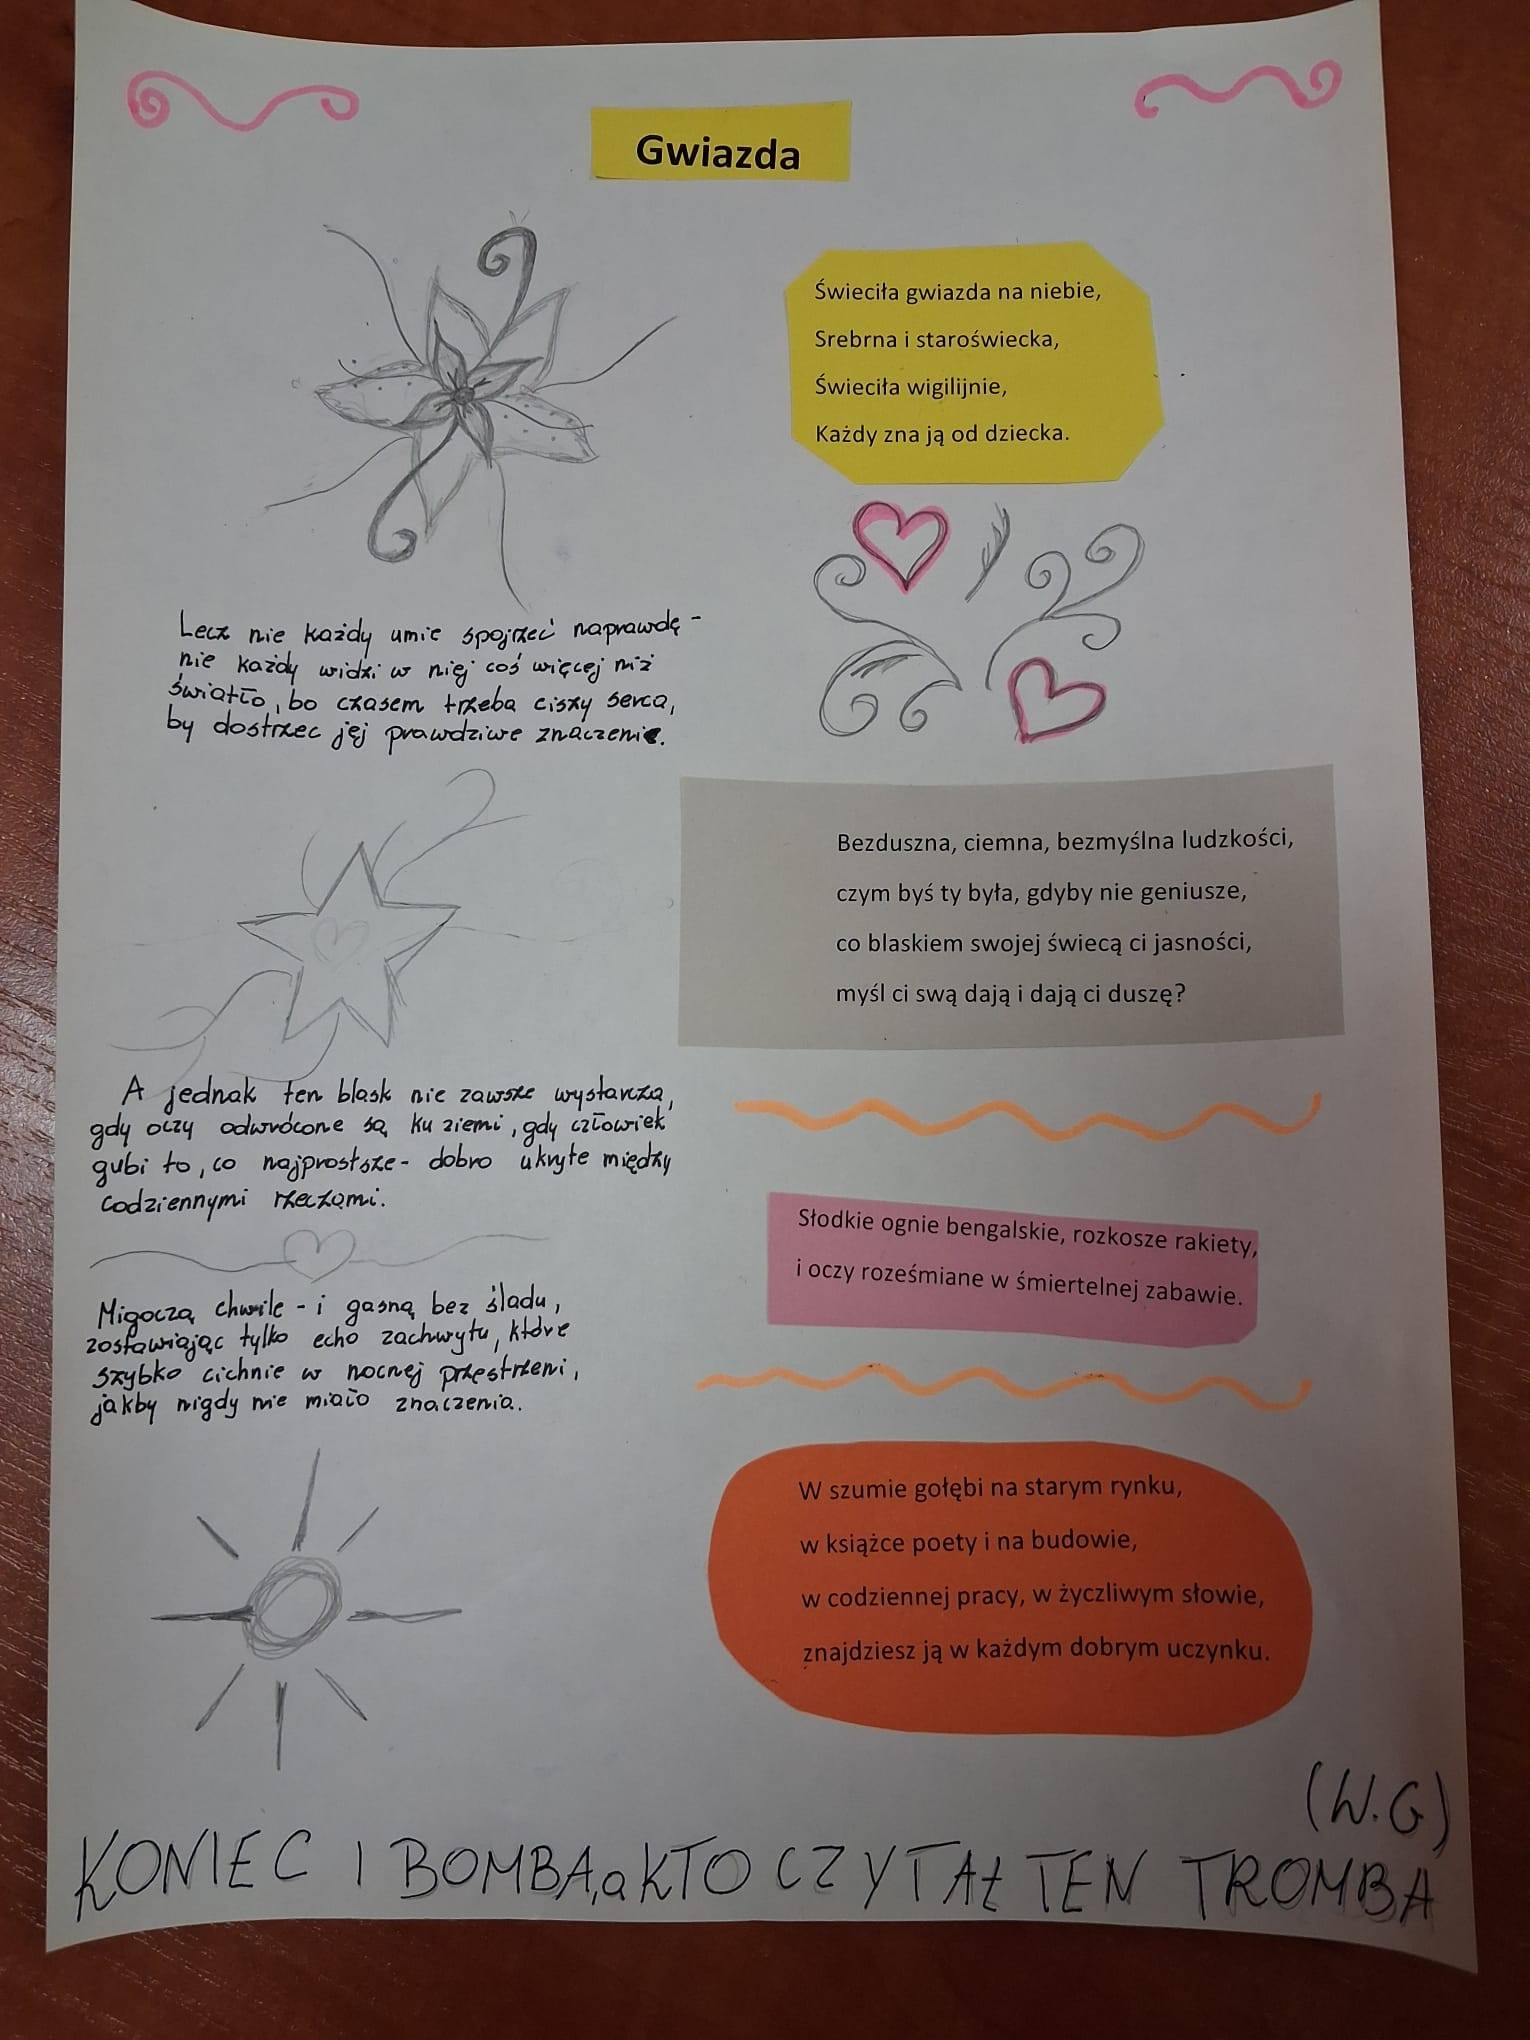 Gwiazda
Świeciła gwiazda na niebie,
Srebrna i staroświecka,
Świeciła wigilijnie,
Każdy zna ją od dziecka.
Lecz nie każdy umie spojrzeć naprawdę -
nie każdy widzi w niej coś więcej niż
światło, bo czasem trzeba ciszy serca,
by dostrzec jej prawdziwe znaczenie.
Bezduszna, ciemna, bezmyślna ludzkości,
czym byś ty była, gdyby nie geniusze,
co blaskiem swojej świecą ci jasności,
myśl ci swą dają i dają ci duszę?
A jednak ten blask nie zawsze wystarcza,
gdy oczy odwrócone są ku ziemi, gdy człowiek
gubi to, co najprostsze - dobro ukryte między
codziennymi rzeczami.
Słodkie ognie bengalskie, rozkosze rakiety,
i oczy roześmiane w śmiertelnej zabawie.
Migoczą chwile - i gasną bez śladu,
zostawiając tylko echo zachwytu, które
szybko cichnie w nocnej przestrzeni,
jakby nigdy nie miało znaczenia.
W szumie gołębi na starym rynku,
w książce poety i na budowie,
w codziennej pracy, w życzliwym słowie,
znajdziesz ją w każdym dobrym uczynku.
(W.G)
KONIEC I BOMBA, a KTO CZYTAŁ TEN TROMBA